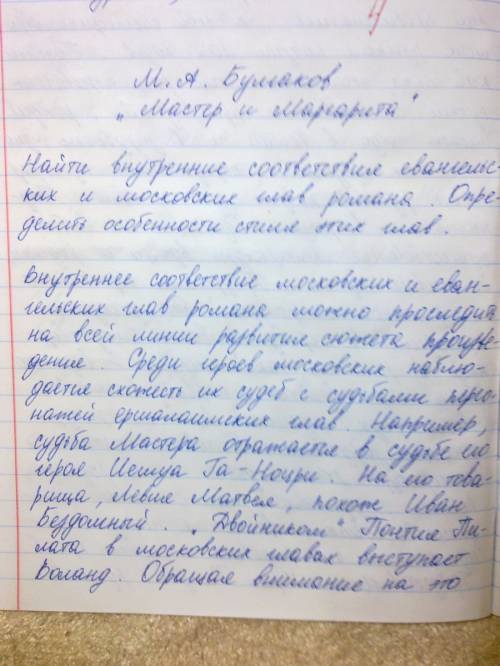 4
М. А. Булгаков
„Мастер и Маргарита"
Найти внутренние соответствия евангельс-
ких и московских глав романа. Опре-
делить особенности стиля этих глав.
Внутреннее соответствие московских и еван-
гельских глав романа можно проследить
на всей линии развития сюжета произве-
дения. Среди героев московских наблю-
дается схожесть их судеб с судьбами персо-
нажей ершалаимских глав. Например,
судьба Мастера отражается в судьбе его
героя Иешуа Га-Ноцри. На его това-
рища, Левия Матвея, похож Иван
Бездомный. „Двойником" Понтия Пи-
лата в московских главах выступает
Воланд. Обращая внимание на это